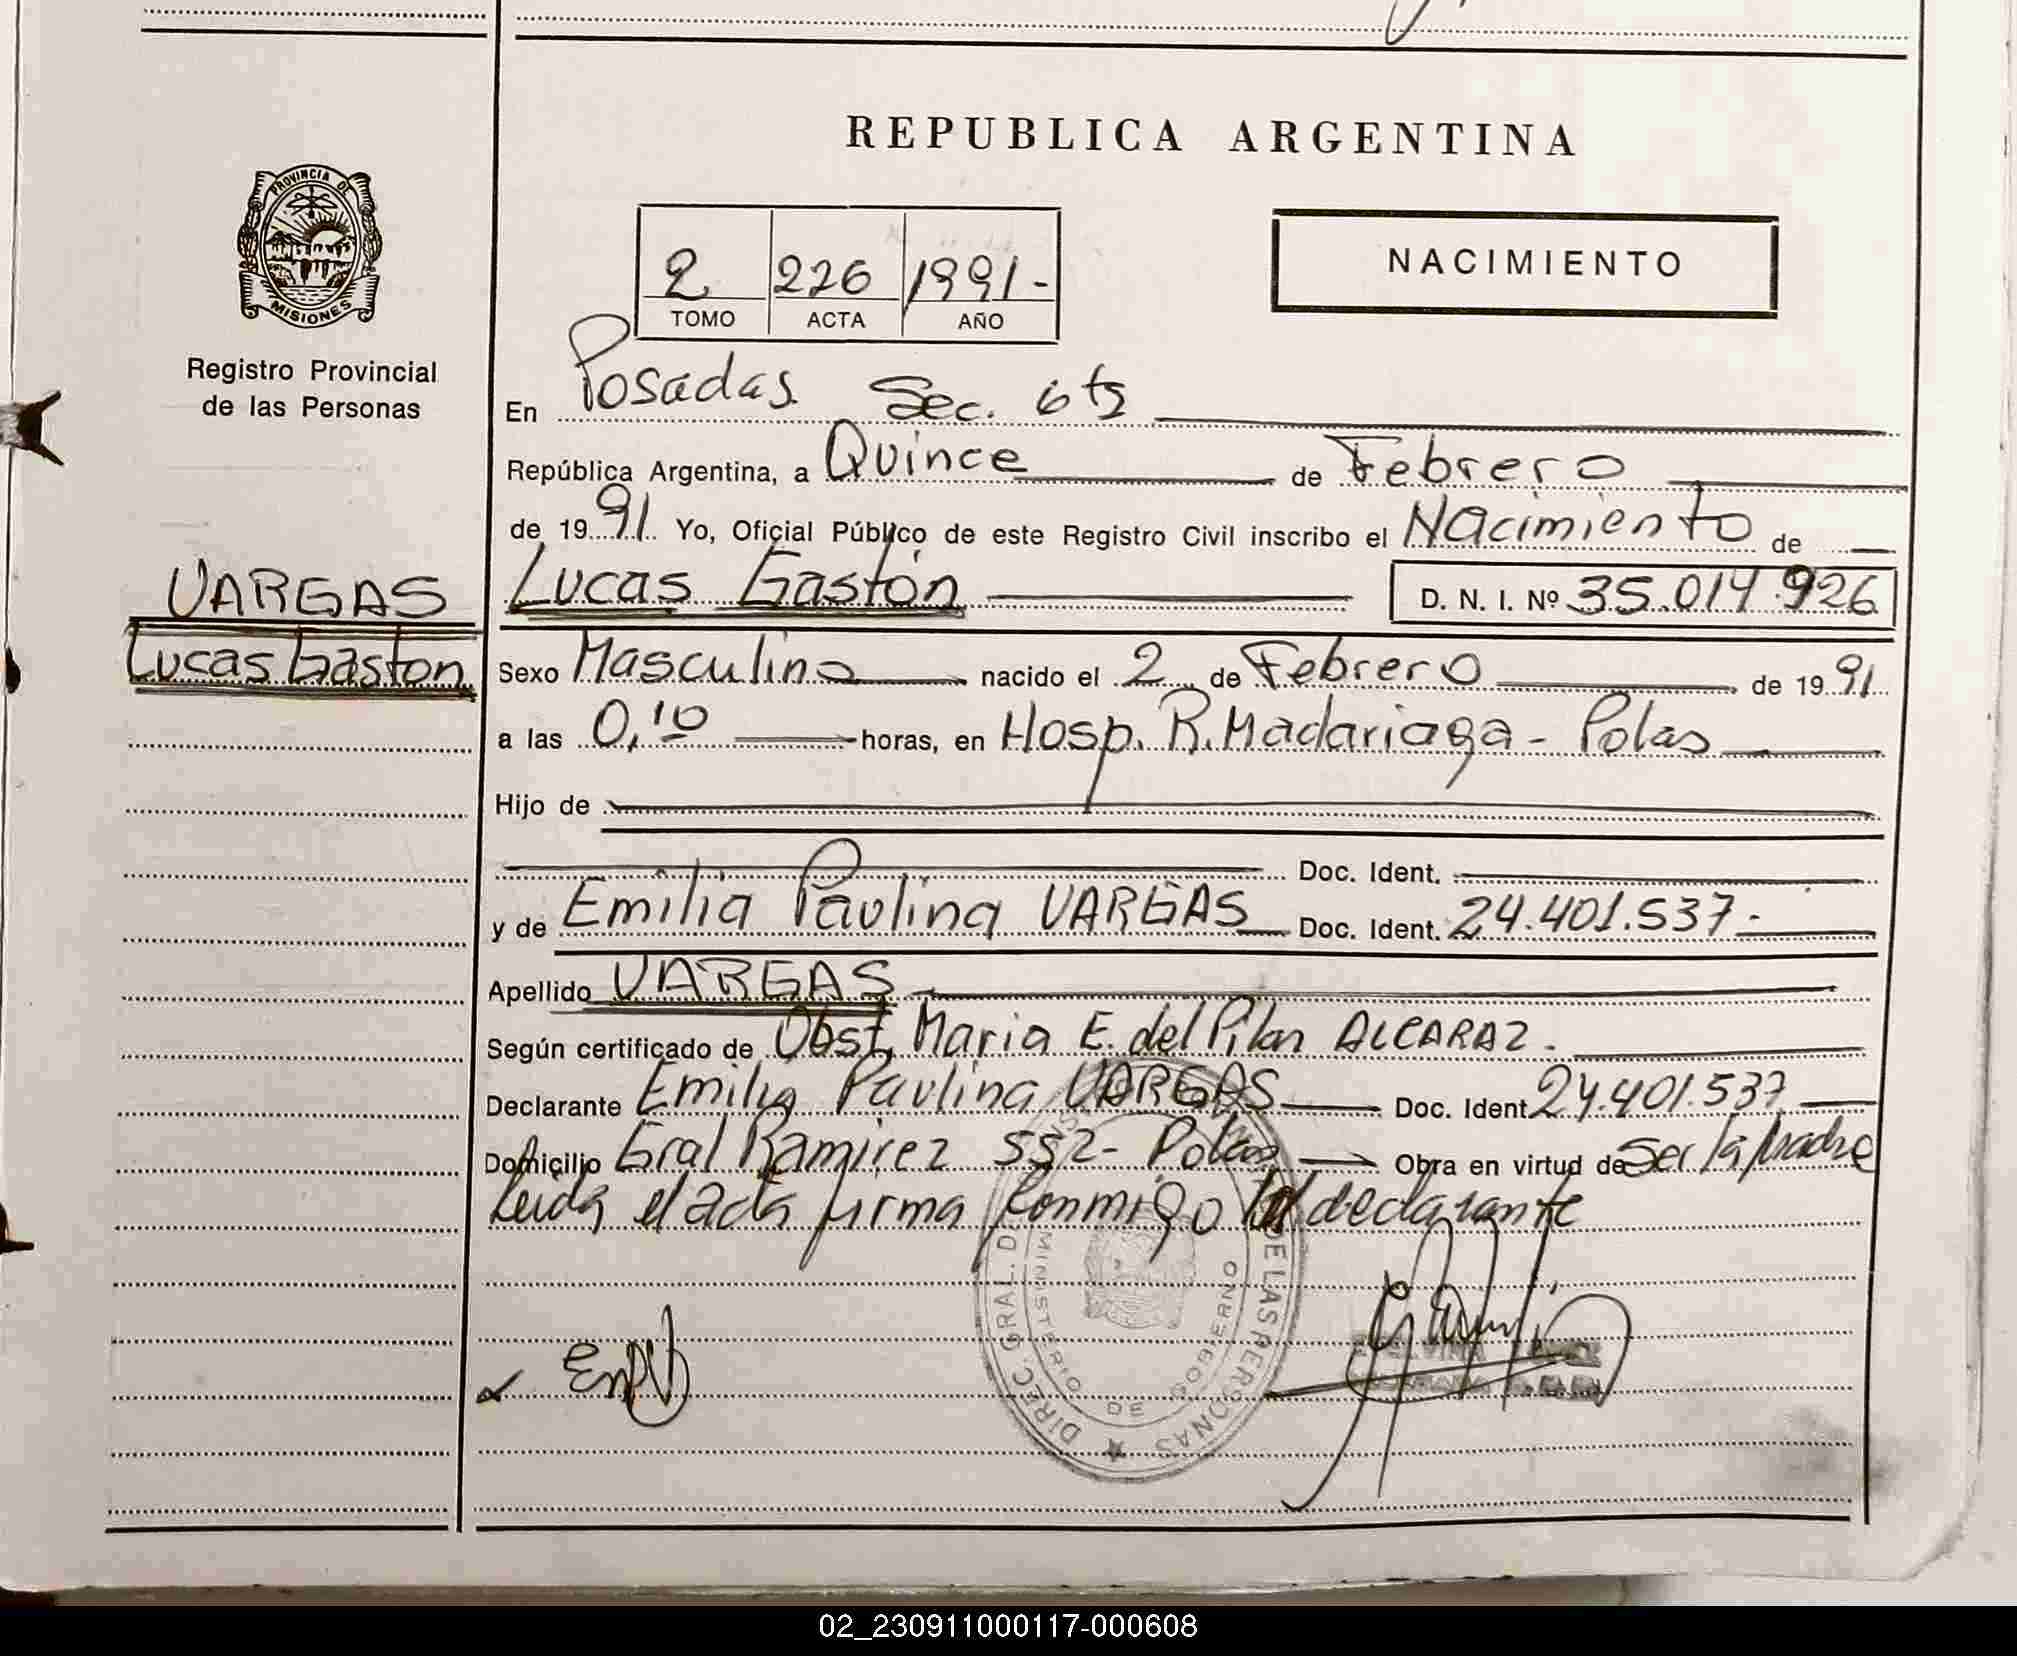 REPUBLICA ARGENTINA
PROVINCIA DE MISIONES
Registro Provincial
de las Personas
2 226 1991-
TOMO ACTA AÑO
NACIMIENTO
En Posadas Sec. 6ta
República Argentina, a Quince de Febrero
de 1991 Yo, Oficial Público de este Registro Civil inscribo el Nacimiento de
VARGAS
Lucas Gaston
Lucas Gastón D. N. I. Nº 35.014.926
Sexo Masculino nacido el 2 de Febrero de 1991
a las 0,10 horas, en Hosp. R. Madariaga - Pdas
Hijo de
Doc. Ident.
y de Emilia Paulina VARGAS Doc. Ident. 24.401.537-
Apellido VARGAS
Según certificado de Obst. Maria E. del Pilar ALCARAZ.
Declarante Emilia Paulina VARGAS Doc. Ident 24.401.537
Domicilio Gral Ramirez 552- Pdas Obra en virtud de ser la madre
Leida el acta firma conmigo la declarante
DIREC. GRAL. DE LAS PERSONAS
MINISTERIO DE GOBIERNO
02_230911000117-000608